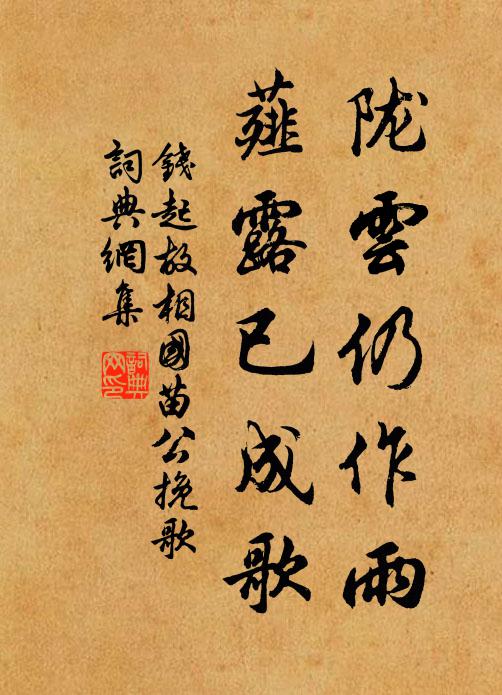 陇雲仍作雨
薤露已成歌
錢起故相國苗公挽歌
詞典網集
詞典網印